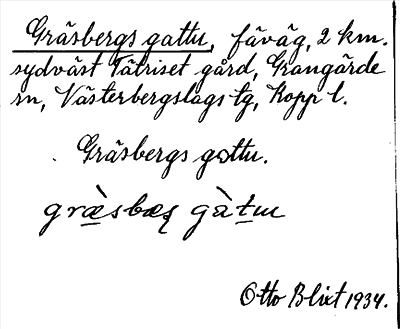 Gräsbergs gattu, fäväg, 2 km.
sydväst Tätriset gård, Grangärde
sn, Västerbergslags tg, Kopp l.
Gräsbergs gattu.
Otto Blixt 1934.